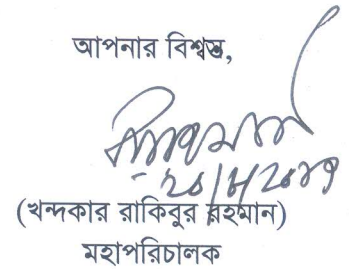 আপনার বিশ্বস্ত,
(খন্দকার রাকিবুর রহমান)
মহাপরিচালক